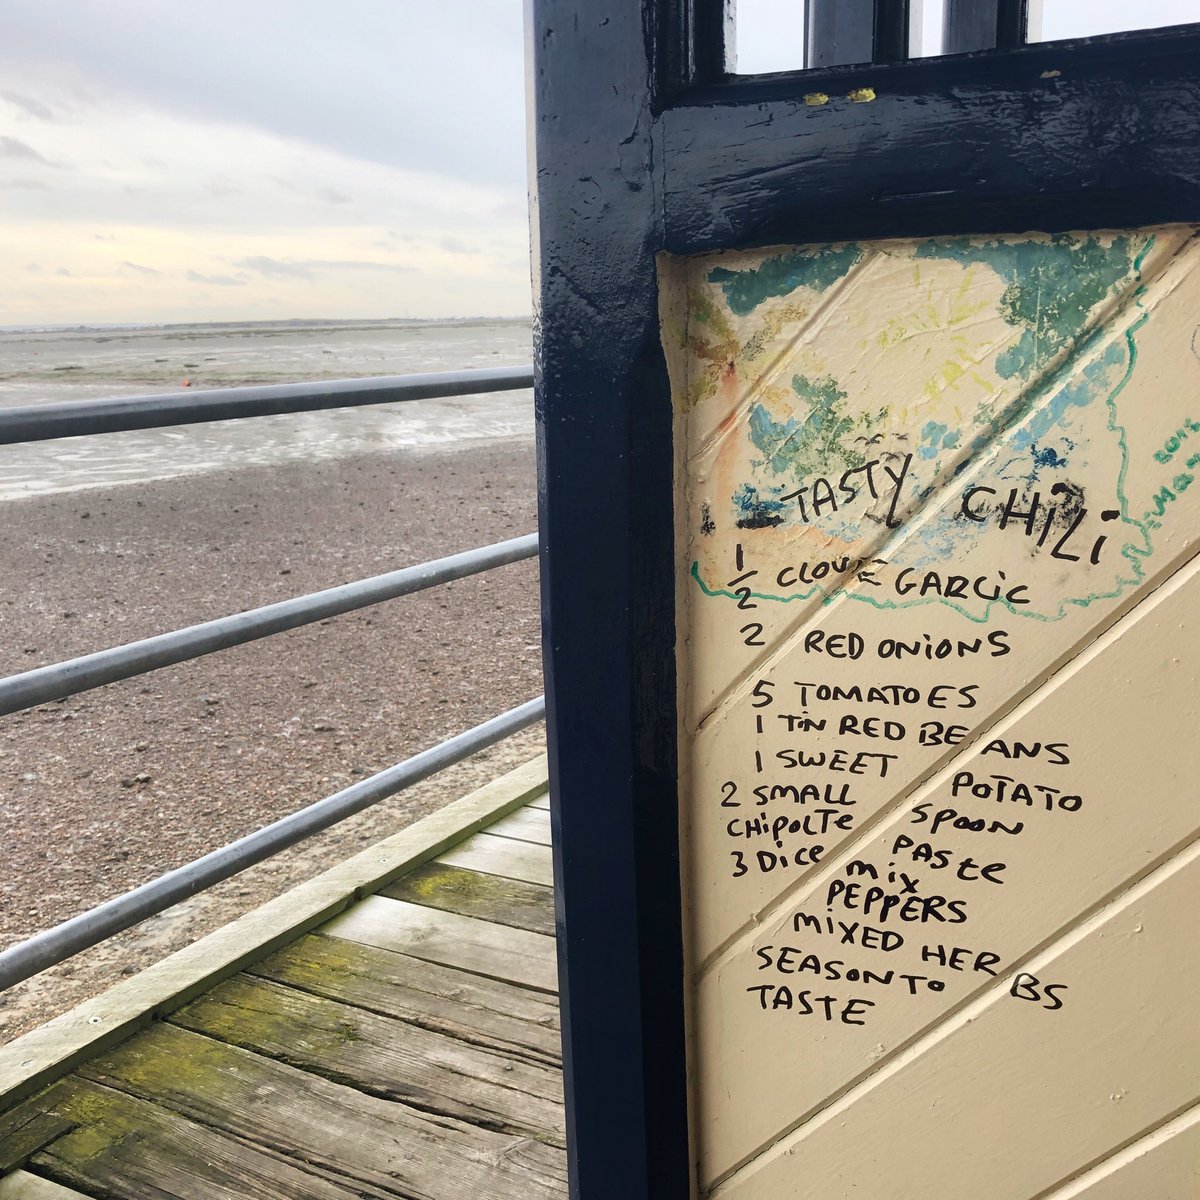 TASTY CHiLi
1/2 CLOVE GARLiC
2 RED ONiONS
5 TOMATOES
1 TiN RED BEANS
1 SWEET POTATO
2 SMALL SPOON
CHiPOLTE PASte
3 DiCe miX
PEPPERS
MiXED HERBS
SEASON TO
TASTE